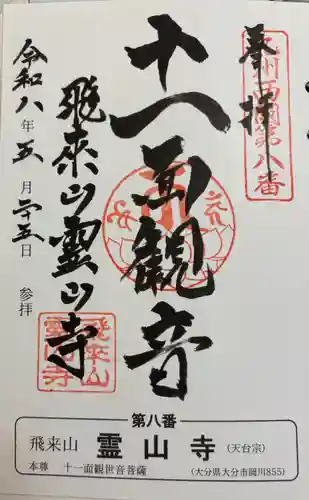 奉拝
九州西國第八番
十一面觀音
飛来山霊山寺
飛来山霊山寺
令和八年五月二十五日 参拝
第八番
飛来山 霊山寺 (天台宗)
本尊 十一面観世音菩薩 (大分県大分市岡川855)